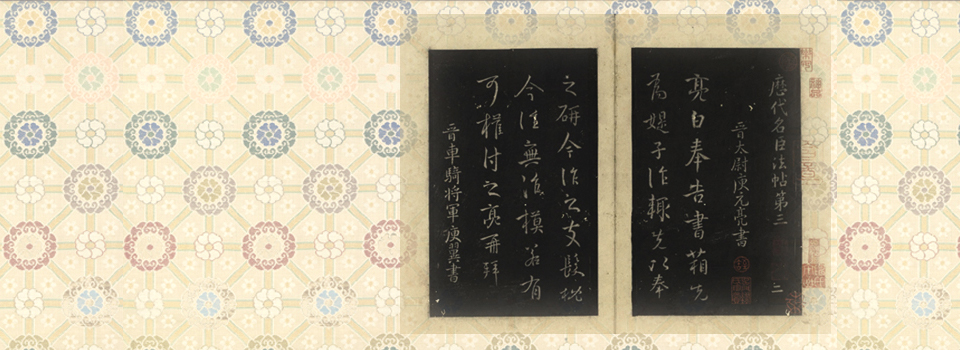 歷代名臣法帖第三
二
晉太尉庾元亮書
亮白奉告書箱先
為媞子作輒先以奉
之研今作之支髮枇
今往無復模若有
可權付之亮再拜
晉車騎將軍庾翼書